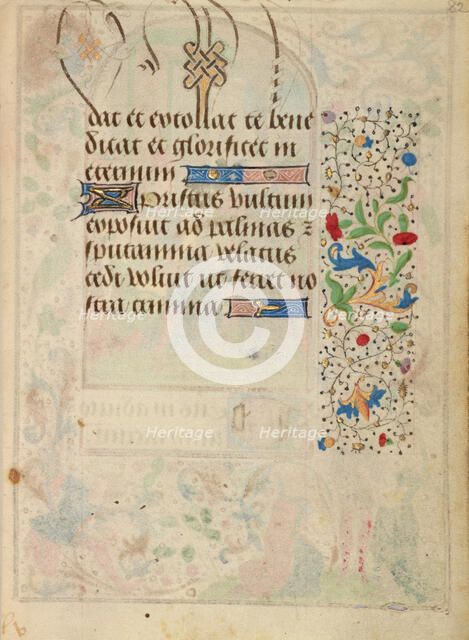 82
dat et extollat te bene
dicat et glorificet in
eternum
Xpristus vultum
exposuit ad palmas &
sputamina velatus
cedi voluit ut ferret no
stra crimina
Heritage Heritage
Heritage Heritage
Heritage Heritage